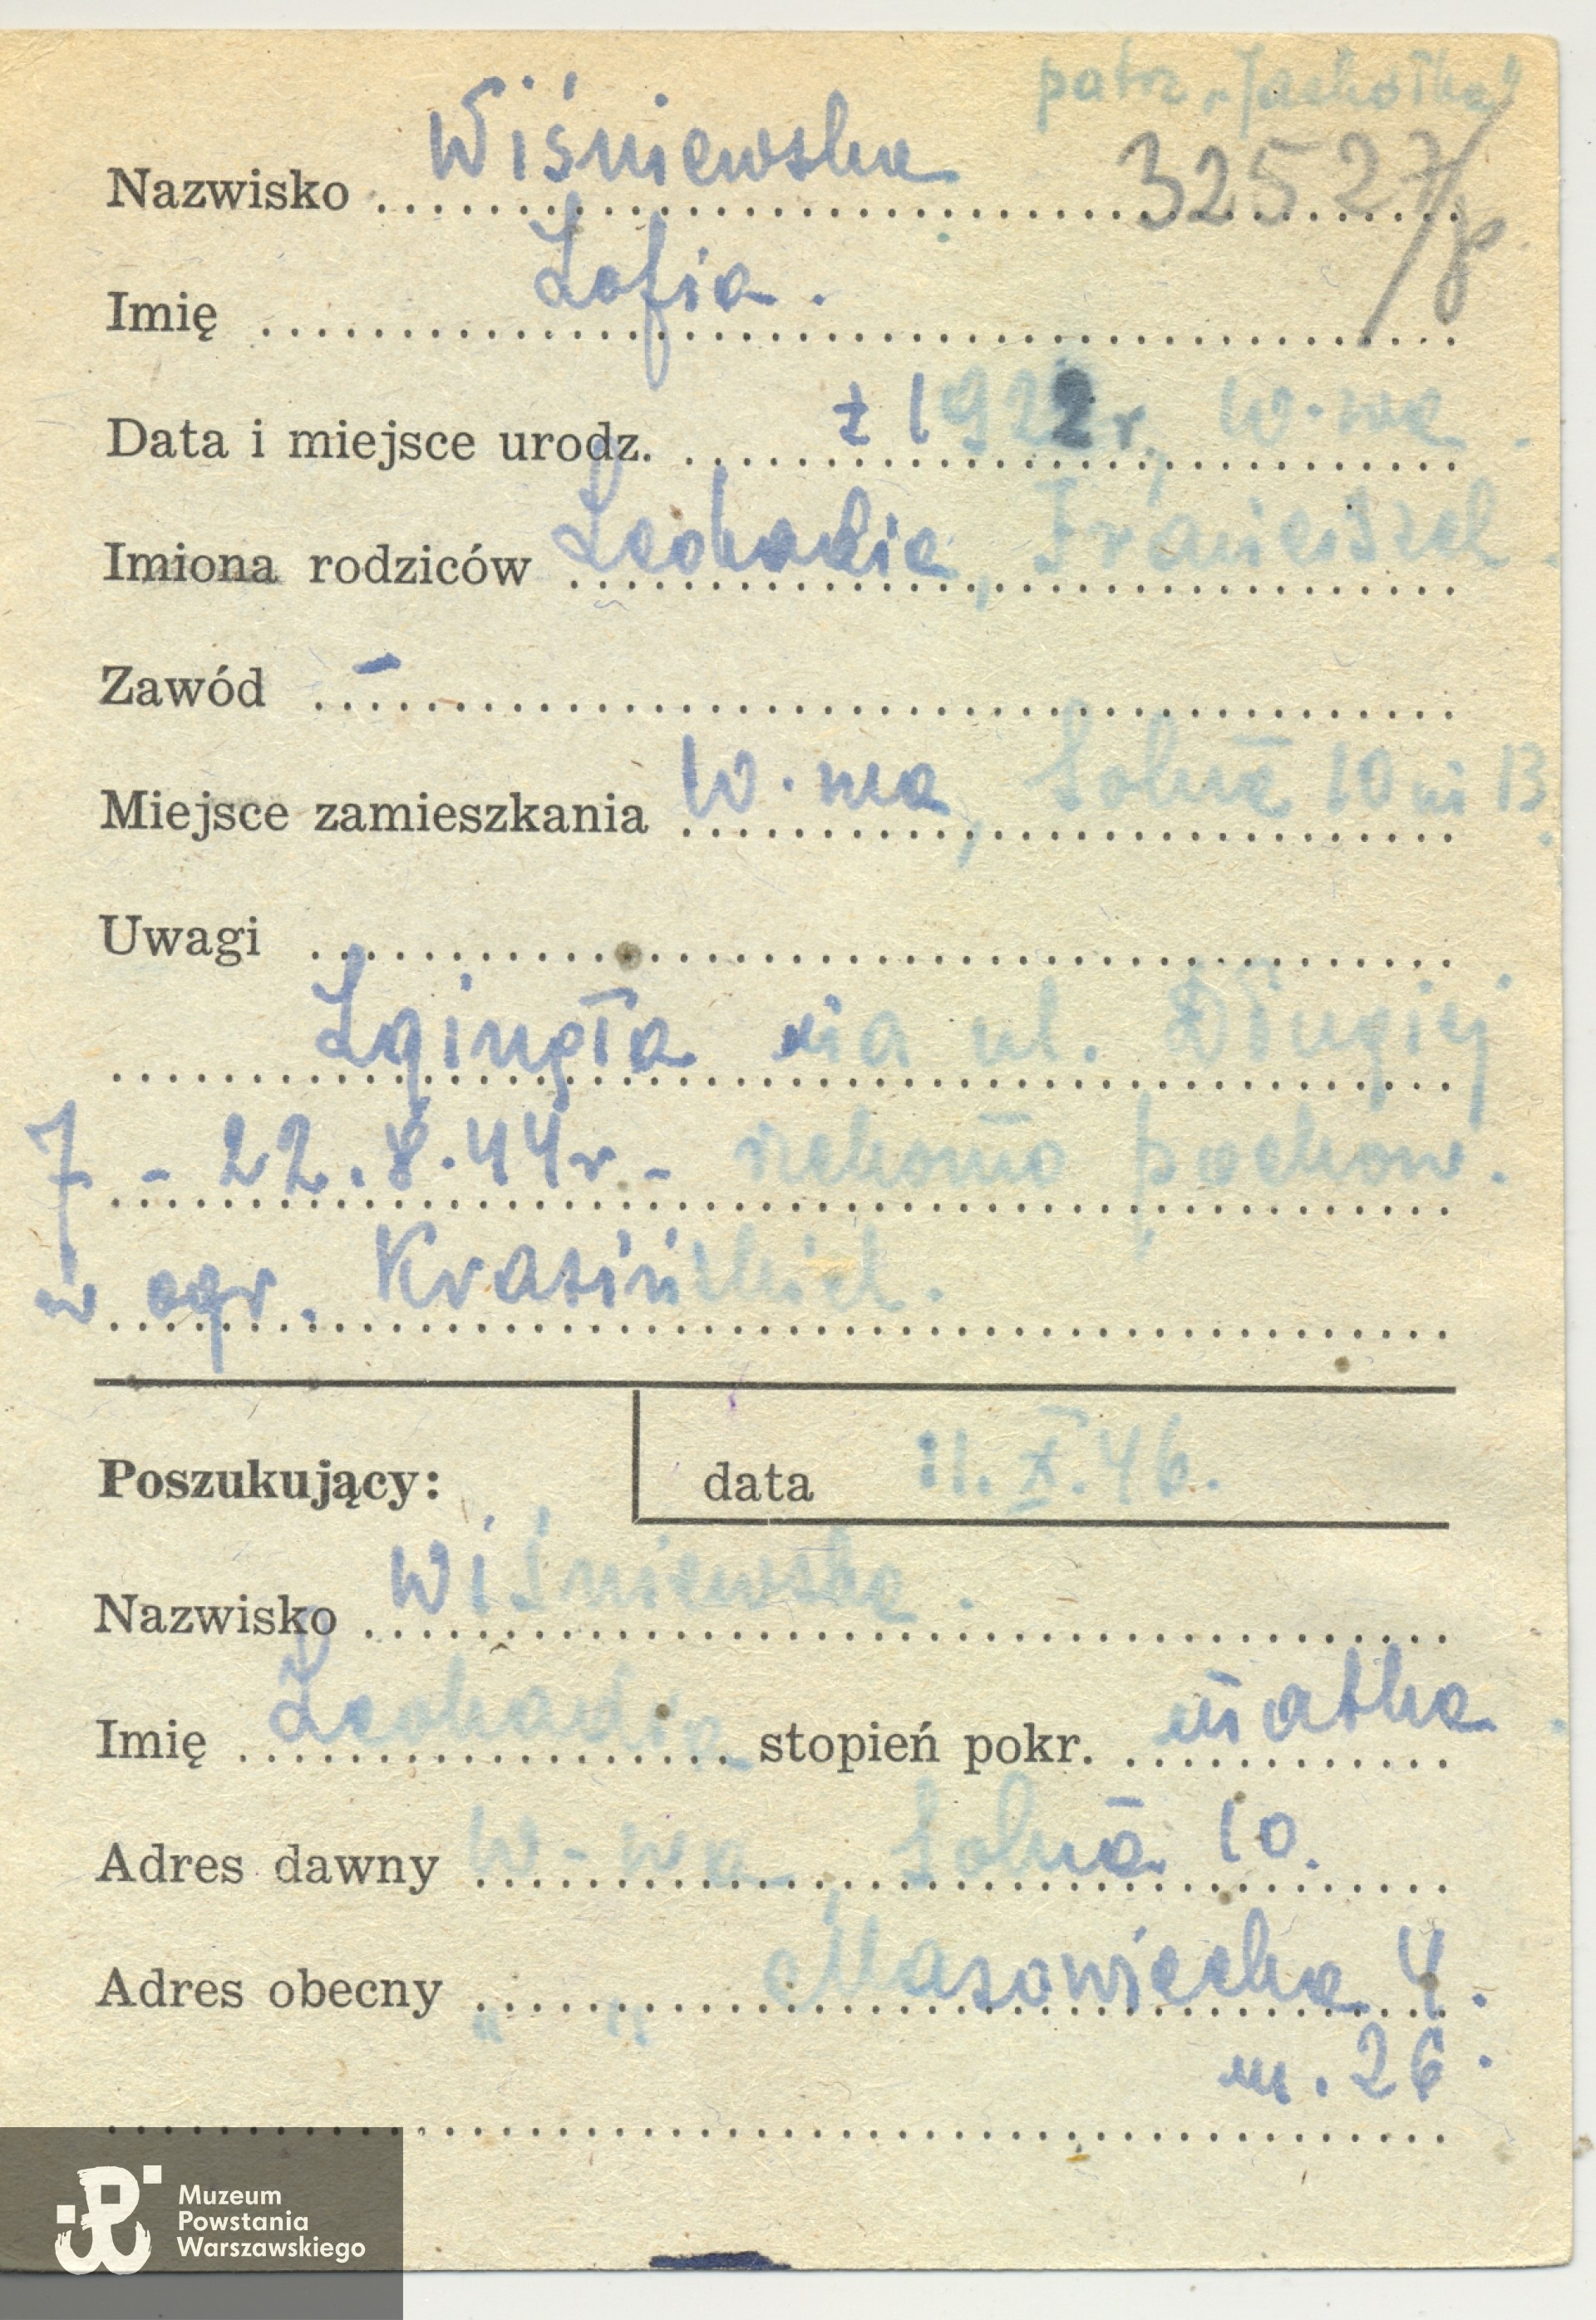 patrz „Jaskółka"
Nazwisko Wiśniewska 32527/p
Imię Zofia.
Data i miejsce urodz. z 1922 r, W-wa.
Imiona rodziców Leokadia, Franciszek.
Zawód –
Miejsce zamieszkania W-wa, Solna 10 m 13.
Uwagi
Zginęła na ul. Długiej
7 - 22.8.44 r - rzekomo pochow.
w ogr. Krasińskich.
Poszukujący: data 11.X.46.
Nazwisko Wiśniewska.
Imię Leokadia stopień pokr. matka.
Adres dawny W-wa, Solna 10.
Adres obecny " " Mazowiecka 4.
m. 26.
Muzeum
Powstania
Warszawskiego